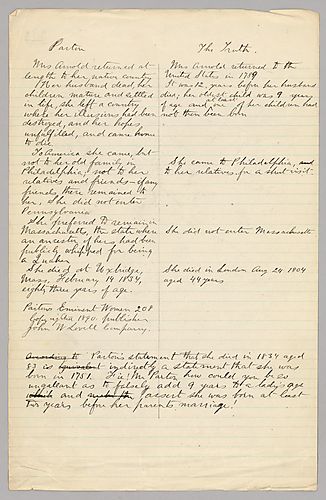 Parton
Mrs Arnold returned at
length to her native country
Her husband dead, her
children mature and settled
in life, she left a country
where her illusions had been
destroyed, and her hopes
unfulfilled, and came home
to die
To America she came, but
not to her old family in
Philadelphia; not to her
relatives and friends—if any
friends there remained to
her. She did not enter
Pennsylvania
She preferred to remain in
Massachusetts, the state where
an ancestor of hers had been
publicly whipped for being
a Quaker
She died at Uxbridge,
Mass, February 14 1834,
eighty three years of age.
Parton's Eminent Women 208
Copyrighted 1890. publisher
John W Lovell Company.
The Truth.
Mrs Arnold returned to the
United States in 1789
It was 12 years before her husband
died; her oldest child was 9 years
of age and one at least of her children had
not then been born
She came to Philadelphia, and
to her relatives, for a short visit
She did not enter Massachusetts
She died in London Aug 24 1804
aged 44 years
According to Parton's statement that she died in 1834 aged
83 is equivalent indirectly a statement that she was
born in 1751. Fie! Mr Parton how could you be so
ungallant as to falsely add 9 years to a lady's age
which and assert she was born at least
two years before her parents marriage!